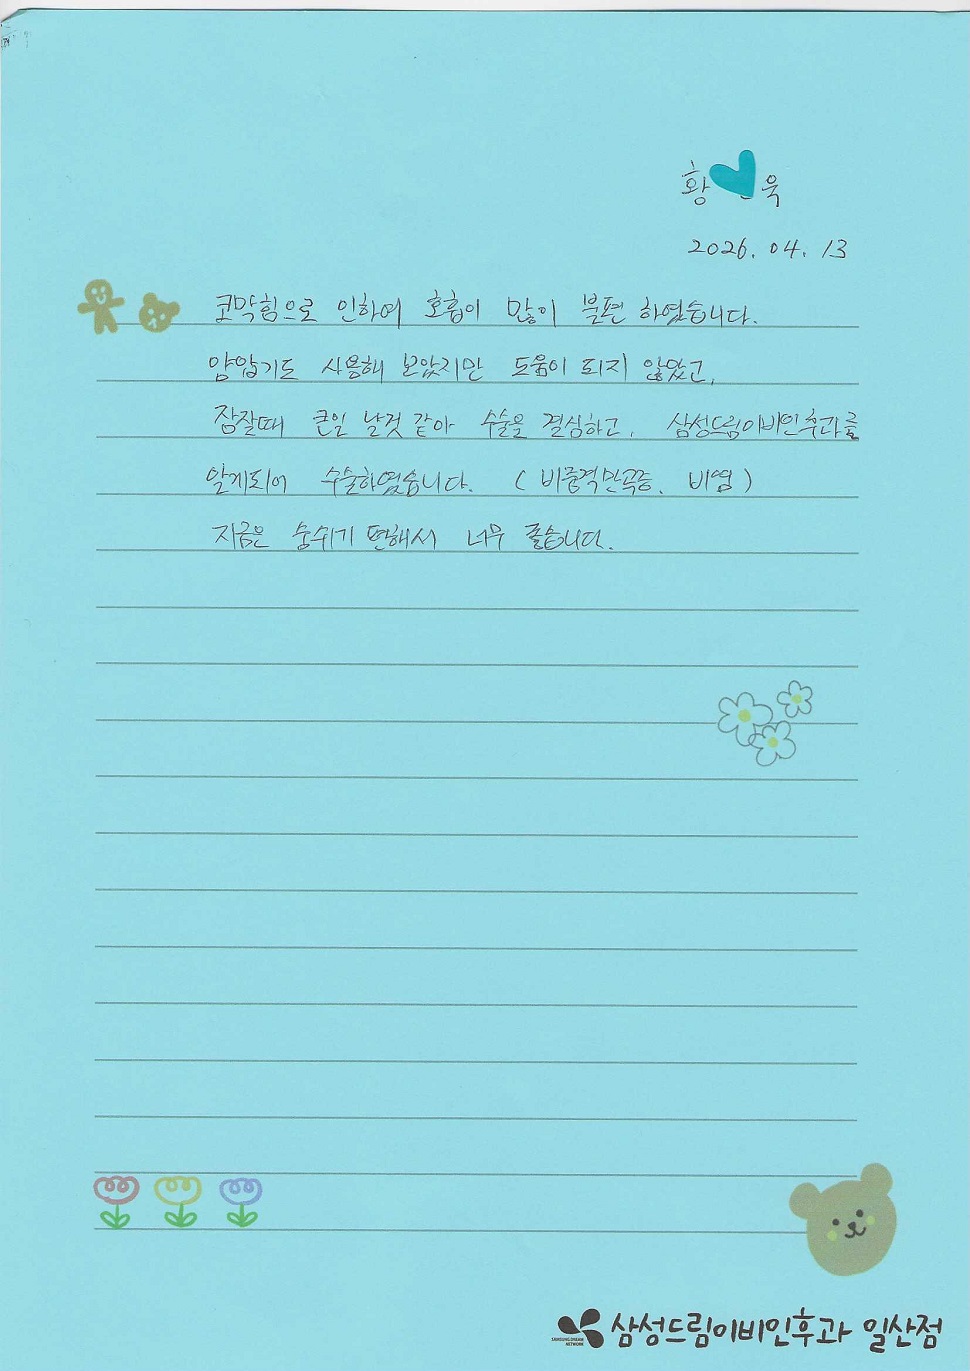 황 욱
2026. 04. 13
코막힘으로 인하여 호흡이 많이 불편 하였습니다.
양압기도 사용해 보았지만 도움이 되지 않았고,
잠잘때 큰일 날것 같아 수술을 결심하고, 삼성드림이비인후과를
알게되어 수술하였습니다. (비중격만곡증, 비염)
지금은 숨쉬기 편해서 너무 좋습니다.
SAMSUNG DREAM NETWORK 삼성드림이비인후과 일산점